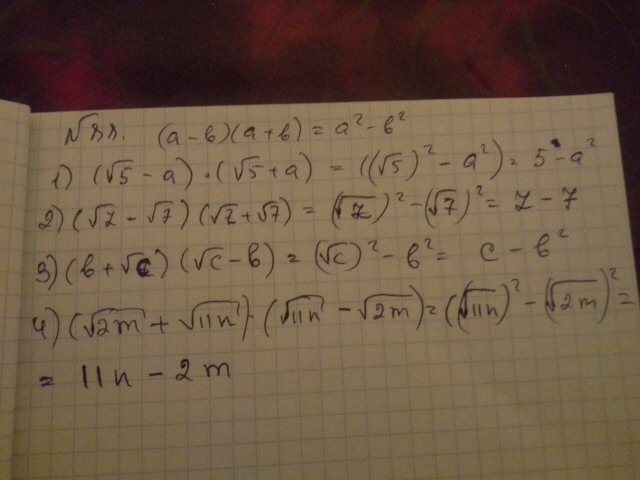 №88. (a-в)(a+в) = a²-в²
1) (√5 - a)·(√5 + a) = ((√5)² - a²) = 5 - a²
2) (√z - √7)(√z + √7) = (√z)² - (√7)² = z - 7
3) (в + √c)(√c - в) = (√c)² - в² = c - в²
4) (√2m + √11n)·(√11n - √2m) = ((√11n)² - (√2m)² =
= 11n - 2m